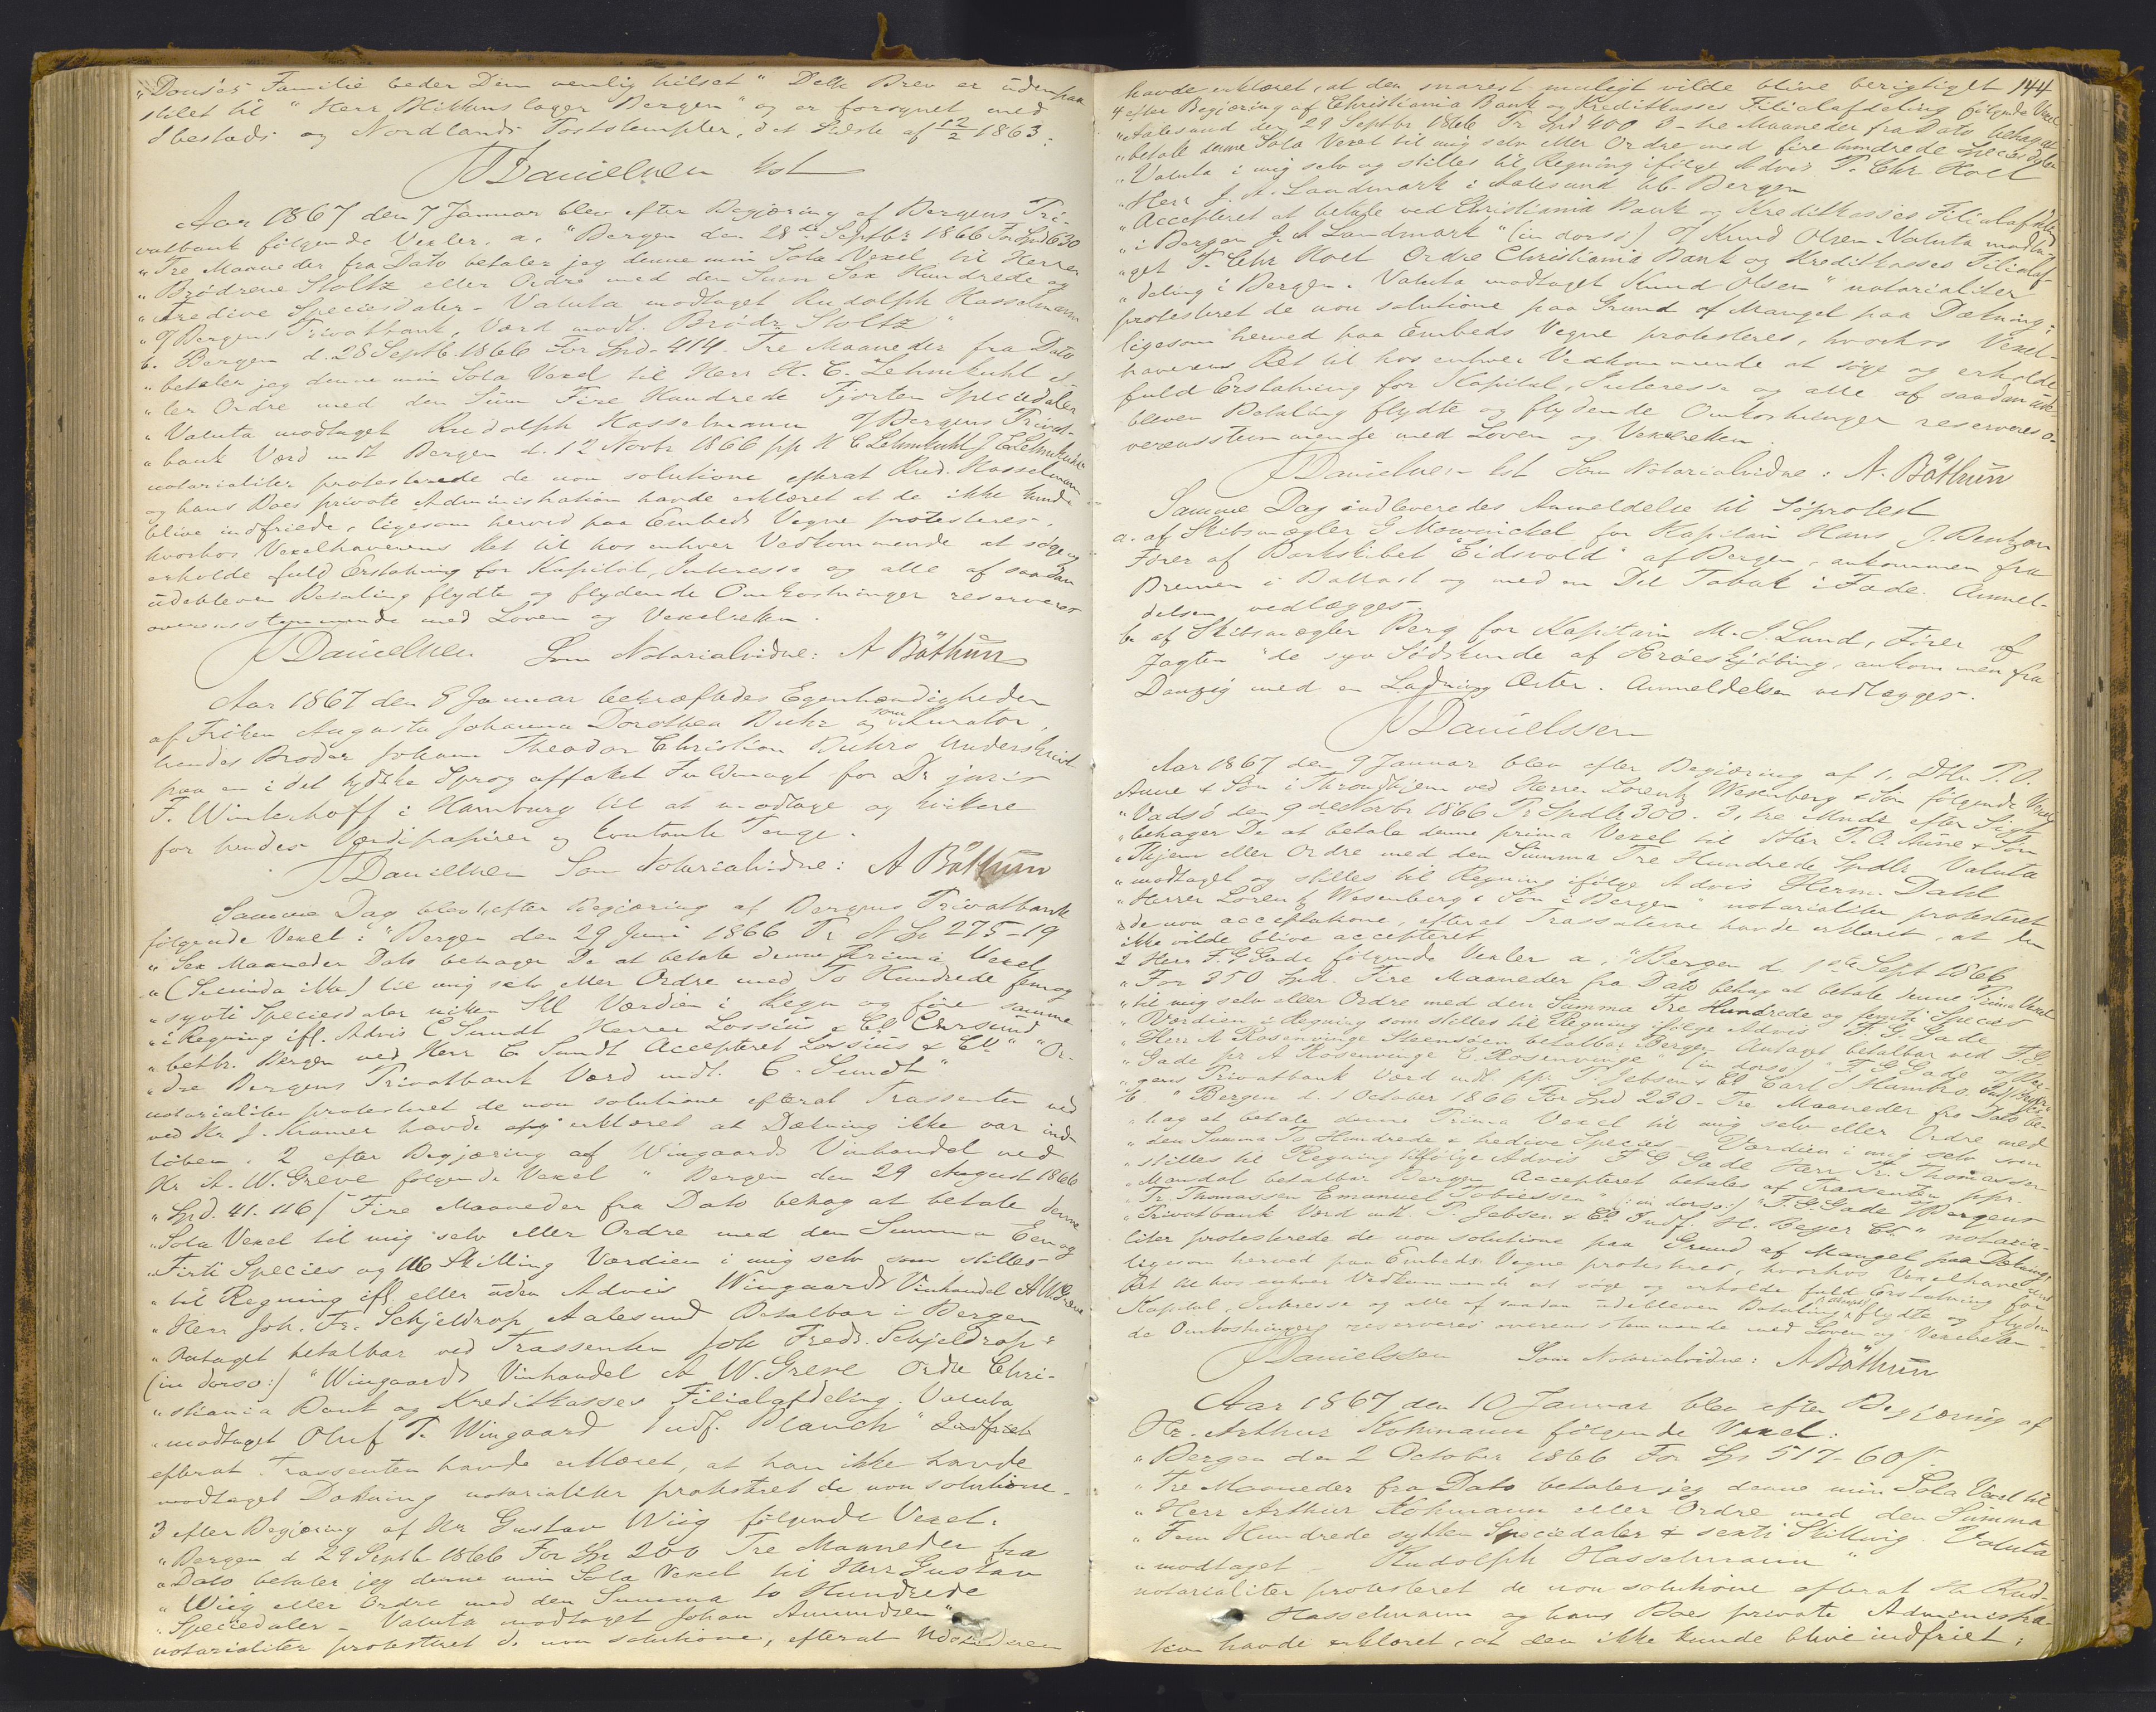 "Donses Familie beder Dem venlig hilset" Dette Brev er udenpaa
stilet til "Herr Blikkenslager Bergen" og er forsynet med
Ibestads og Nordlands Poststempler, det sidste af 12/2 1863.
JDanielssen kst
Aar 1867 den 7 Januar blev efter Begjæring af Bergens Pri-
vatbank følgende Vexler. a. "Bergen den 28de Septbr 1866 For Spd 630
"Tre Maaneder fra Dato betaler jeg denne min Sola Vexel til Herrer
"Brødrene Stoltz eller Ordre med den Sum Sex Hundrede og
"tredive Speciesdaler - Valuta modtaget Rudolph Hasselmann
"Bergens Privatbank, Værd modt. Brødr Stoltz"
b. Bergen d. 28 Septb 1866 For Spd. 414. Tre Maaneder fra Dato
"betaler jeg denne min Sola Vexel til Herr H. C. Lehmkuhl el-
"ler Ordre med den Sum Fire Hundrede Fjorten Speciedaler
"Valuta modtaget Rudolph Hasselmann Bergens Privat-
"bank Værd mdt Bergen d. 12 Novbr 1866 pp H C Lehmkuhl J E Lehmkuhl
notarialiter protesterede de non solutione efterat Rud. Hasselmann
og hans Boes private Administration havde erklæret at de ikke kunde
blive indfriede, ligesom herved paa Embeds Vegne protesteres,
hvorhos Vexelhaverens Ret til hos enhver Vedkommende at søge og
erholde fuld Erstatning for Kapital, Interesse og alle af saadan
udebleven Betaling flydte og flydende Omkostninger reserveres
overensstemmende med Loven og Vexelretten.
JDanielssen Som Notarialvidne: A Bøthun
Aar 1867 den 8 Januar bekræftedes Egenhændigheden
af Frøken Augusta Johanna Dorothea Buhr og som Kurator,
hendes Broder Johann Theodor Christian Buhrs Underskrift
paa en i det tydske Sprog affattet Fuldmagt for Dr juris
F. Winterhoff i Hamburg til at modtage og kvittere
for hendes Værdipapirer og Contante Penge.
JDanielssen Som Notarialvidne: A Bøthun
Samme Dag blev 1, efter Begjæring af Bergens Privatbank
følgende Vexel: "Bergen den 29 Juni 1866 Pr Sp 275-19
"Sex Maaneder Dato behager De at betale denne Prima Vexel
"(Secunda ikke) til mig selv eller Ordre med To Hundrede fem og
"syvti Speciesdaler nitten Skl Værdien i Regn og føre samme
"i Regning ifl. Advis C Sundt Herrer Lossius & Co Christsund
"betbr. Bergen ved Herr C. Sundt Accepteret Lossius & Co" "Or-
"dre Bergens Privatbank Værd mdt. C. Sundt"
notarialiter protesteret de non solutione efterat Trassenten
ved Hr J. Kramer havde erklæret at Dækning ikke var ind-
løben. 2 efter Begjæring af Wingaards Vinhandel ved
Hr A. W. Greve følgende Vexel "Bergen den 29 August 1866
"Spd. 41. 116/ Fire Maaneder fra Dato behag at betale denne
"Sola Vexel til mig selv eller Ordre med den Summa Een og
"Firti Species og 116 Skilling Værdien i mig selv som stilles
"til Regning ifl. eller uden Advis Wingaards Vinhandel A W Greve
"Herr Joh. Fr. Schjeldrop Aalesund Betalbar i Bergen
"Antaget betalbar ved Trassenten Joh Fredr. Schjeldrop"
(in dorso:) "Wingaards Vinhandel A W. Greve Ordre Chri-
"stiania Bank og Kreditkasses Filialafdeling. Valuta
"modtaget Oluf T. Wingaard Indf. Blauch"
efterat Trassenten havde erklæret, at han ikke havde
modtaget Dækning notarialiter protesteret de non solutione.
3 efter Begjæring af Hr Gustav Wiig følgende Vexel.
"Bergen d 29 Septb 1866 For Sp 200 Tre Maaneder fra
"Dato betaler jeg denne min Sola Vexel til Herr Gustav
"Wiig eller Ordre med den Summa to Hundrede
"Speciedaler - Valuta modtaget Johan Amundsen"
notarialiter protesteret de non solutione, efterat Udstederen
144
havde erklæret, at den snarest muligt vilde blive berigtiget
4 efter Begjæring af Christiania Bank og Kreditkasses Filialafdeling følgende Vexel
"Aalesund den 29 Septbr 1866 Pr Spd 400 3-tre Maaneder fra Dato behag at
"betale denne Sola Vexel til mig selv eller Ordre med fire hundrede Speciesdaler
"Valuta i mig selv og stilles til Regning ifølge Advis P. Chr Hoel
"Herr J. A. Landmark i Aalesund bb. Bergen
"Accepteret at betale ved Christiania Bank og Kreditkasses Filialafdeling
"i Bergen J. A Landmark" (in dorso) Knud Olsen Valuta modta-
"get P. Chr Hoel Ordre Christiania Bank og Kreditkasses Filialaf-
"deling i Bergen. Valuta modtaget Knud Olsen" notarialiter
protesteret de non solutione paa Grund af Mangel paa Dækning,
ligesom herved paa Embeds Vegne protesteres, hvorhos Vexel-
haverens Ret til hos enhver Vedkommende at søge og erholde
fuld Erstatning for Kapital, Interesse og alle af saadan ude-
bleven Betaling flydte og flydende Omkostninger reserveres o-
verensstemmende med Loven og Vexelretten.
JDanielssen kst Som Notarialvidne: A. Bøthun
Samme Dag indleveredes Anmeldelse til Søprotest
a. af Skibsmægler G Mowinckel for Kaptain Hans J. Bentzon
Fører af Barkskibet "Eidsvold" af Bergen, ankommen fra
Bremen i Ballast og med en Del Tobak i Fade. Anmel-
delsen vedlægges.
b. af Skibsmægler Berg for Kapitain M. J. Lund, Fører af
Jagten "de syv Sødskende af Ærøeskjøbing, ankommen fra
Danzig med en Ladning Ærter. Anmeldelsen vedlægges.
JDanielssen
Aar 1867 den 9 Januar blev efter Begjæring af 1. DHr. P. O.
Aune & Søn i Throndhjem ved Herrer Lorentz Wesenberg & Søn følgende Vexel
"Vadsø den 9de Novbr 1866 Pr Spdlr 300. 3, tre Mndr efter Sigt
"behager De at betale denne prima Vexel til DHr P. O. Aune & Søn
"Thjem eller Ordre med den Summa Tre Hundrede Spdlr. Valuta
"modtaget og stilles til Regning ifølge Advis Herm. Dahl
"Herrer Lorentz Wesenberg & Søn i Bergen" notarialiter protesteret
de non acceptatione, efterat Trassaterne havde erklæret, at den
ikke vilde blive accepteret
2 Herr F. G Gade følgende Vexler a. "Bergen d. 1ste Sept 1866
"For 350 Spd. Fire Maaneder fra Dato behag at betale denne Prima Vexel
"til mig selv eller Ordre med den Summa Tre Hundrede og femti Species
"Værdien i Regning som stilles til Regning ifølge Advis F. G. Gade
"Herr A Rosenvinge Steensøen betalbar Bergen Antaget betalbar ved F. G.
"Gade pr A Rosenvinge C. Rosenvinge" (in dorso) "F. G. Gade Ber-
"gens Privatbank Værd mdt. pp. P. Jebsen & Co Carl Hambro.
"b. "Bergen d. 1 October 1866 For Spd 230. Tre Maaneder fra Dato be-
"hag at betale denne Prima Vexel til mig selv eller Ordre med
"den Summa To Hundrede & tredive Species - Værdien i mig selv som
"stilles til Regning ifølge Advis F G Gade Herr Fr. Thomassen
"Mandal betalbar Bergen Accepteret betales af Trassenten ppr.
"Fr. Thomassen Emanuel Tobiessen" (in dorso:) "F. G. Gade Bergens
"Privatbank Værd mdt. P. Jebsen & Co Indf. H. Beyer Co" notaria-
liter protesterede de non solutione paa Grund af Mangel paa Dækning,
ligesom herved paa Embeds Vegne protesteres, hvorhos Vexelhaverens
Ret til hos enhver Vedkommende at søge og erholde fuld Erstatning for
Kapital, Interesse og alle af saadan udebleven Betaling flydte og flyden-
de Omkostninger reserveres overensstemmende med Loven og Vexelretten
JDanielssen Som Notarialvidne: A Bøthun
Aar 1867 den 10 Januar blev efter Begjæring af
Hr. Arthur Kohmann følgende Vexel:
"Bergen den 2 October 1866 For Sp 517-60/
"Tre Maaneder fra Dato betaler jeg denne min Sola Vexel til
"Herr Arthur Kohmann eller Ordre med den Summa
"Fem Hundrede sytten Speciedaler & sexti Skilling. Valuta
"modtaget - Rudolph Hasselmann"
notarialiter protesteret de non solutione efterat Hr Rud.
Hasselmann og hans Boes private Administra-
tion havde erklæret, at den ikke kunde blive indfriet;